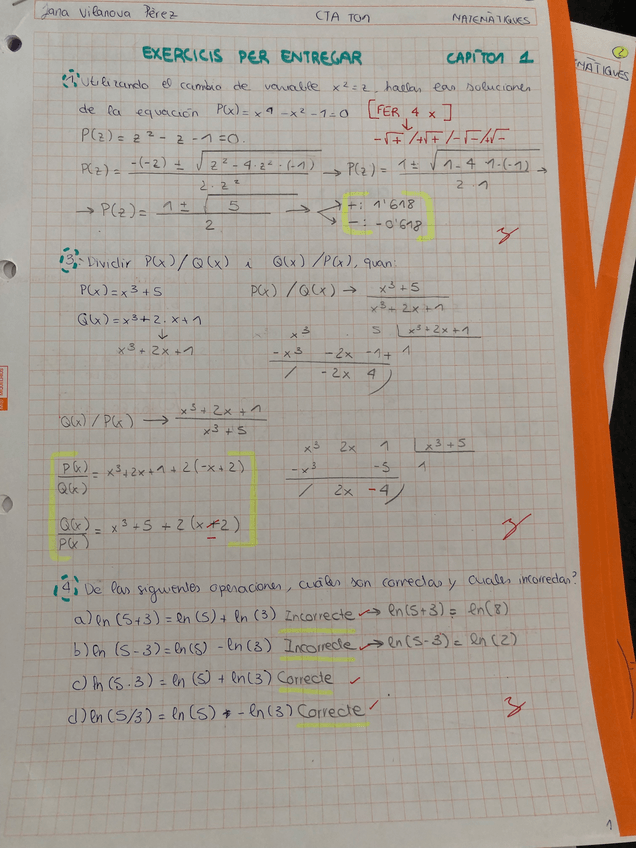 Jana Vilanova Pérez CTA TO1 MATEMÀTIQUES
EXERCICIS PER ENTREGAR CAPÍTOL 1
MATEMÀTIQUES
2
1. Utilizando el cambio de variable x²=z, hallar las soluciones
de la equación P(x)=x⁴-x²-1=0 [FER 4 x]
-√+ / +√+ / -√- / +√-
P(z)=z²-z-1=0.
P(z)= -(-z) ± √z²-4·z²·(-1) / 2·z² → P(z)= 1± √1-4·1·(-1) / 2·1 →
→ P(z)= 1 ± √5 / 2 → +: 1'618
-: -0'618
3. Dividir P(x)/Q(x) i Q(x)/P(x), quan:
P(x)=x³+5 P(x)/Q(x) → x³+5 / x³+2x+1
Q(x)=x³+2·x+1
x³+2x+1
x³ 5 | x³+2x+1
-x³ -2x -1 1
/ -2x 4
Q(x)/P(x) → x³+2x+1 / x³+5
x³ 2x 1 | x³+5
-x³ -5 1
/ 2x -4
P(x)/Q(x) = x³+2x+1+2(-x+2)
Q(x)/P(x) = x³+5+2(x-2)
4. De las siguientes operaciones, cuáles son correctas y cuales incorrectas?
a) ln(5+3)=ln(5)+ln(3) Incorrecte → ln(5+3)= ln(8)
b) ln(5-3)=ln(5)-ln(3) Incorrecte → ln(5-3)= ln(2)
c) ln(5·3)=ln(5)+ln(3) Correcte
d) ln(5/3)=ln(5) - ln(3) Correcte
1